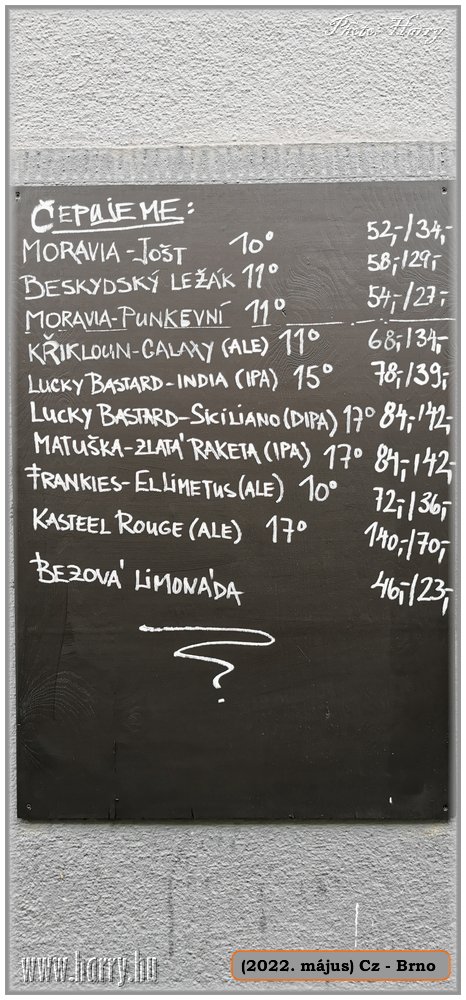 Photo: Harry
ČEPUJEME:
MORAVIA-JOŠT 10° 52,-/34,-
BESKYDSKÝ LEŽÁK 11° 58,-/29,-
MORAVIA-PUNKEVNÍ 11° 54,-/27,-
KŘIKLOUN-GALAXY (ALE) 11° 68,-/34,-
LUCKY BASTARD-INDIA (IPA) 15° 78,-/39,-
LUCKY BASTARD-SICILIANO (DIPA) 17° 84,-/42,-
MATUŠKA-ZLATÁ RAKETA (IPA) 17° 84,-/42,-
FRANKIES-ELLIMETUS (ALE) 10° 72,-/36,-
KASTEEL ROUGE (ALE) 17° 140,-/70,-
BEZOVÁ LIMONÁDA 46,-/23,-
www.horry.hu
(2022. május) Cz - Brno